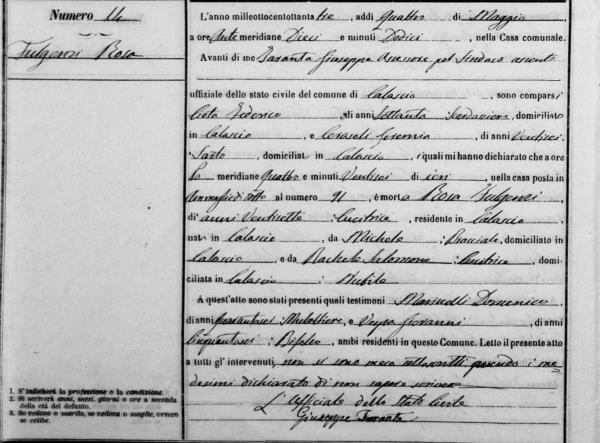 Numero 14
Fulgenzi Rosa
1. S'indicherà la professione o la condizione.
2. Si scriverà anni, mesi, giorni o ore a seconda
della età del defunto.
3. Se vedovo o marito, se vedova o moglie, ovvero
se celibe.
L'anno milleottocentottantatre, addì quattro di Maggio
a ore Ante meridiane Dieci e minuti Dodici, nella Casa comunale.
Avanti di me Taranta Giuseppe Assessore pel Sindaco assente
uffiziale dello stato civile del comune di Calascio, sono comparsi
Federico, di anni Settanta, domiciliato
in Calascio e Geremia, di anni Ventisei
Sarto, domiciliato in Calascio, i quali mi hanno dichiarato che a ore
meridiane Quattro e minuti Ventisei di ieri, nella casa posta in
al numero 91, è morta Rosa Fulgenzi
di anni Ventisette Cucitrice, residente in Calascio,
nata in Calascio, da Michele Bracciale, domiciliato in
Calascio, e da Rachele Salomone Cucitrice, domi-
ciliata in Calascio Nubile
A quest'atto sono stati presenti quali testimoni Marinelli Domenico,
di anni Mulattiere, e Giovanni, di anni
cinquantasei Bifolco, ambi residenti in questo Comune. Letto il presente atto
a tutti gl'intervenuti, non si sono meco sottoscritti avendo i me-
desimi dichiarato di non sapere scrivere
L'Uffiziale dello Stato Civile
Giuseppe Taranta